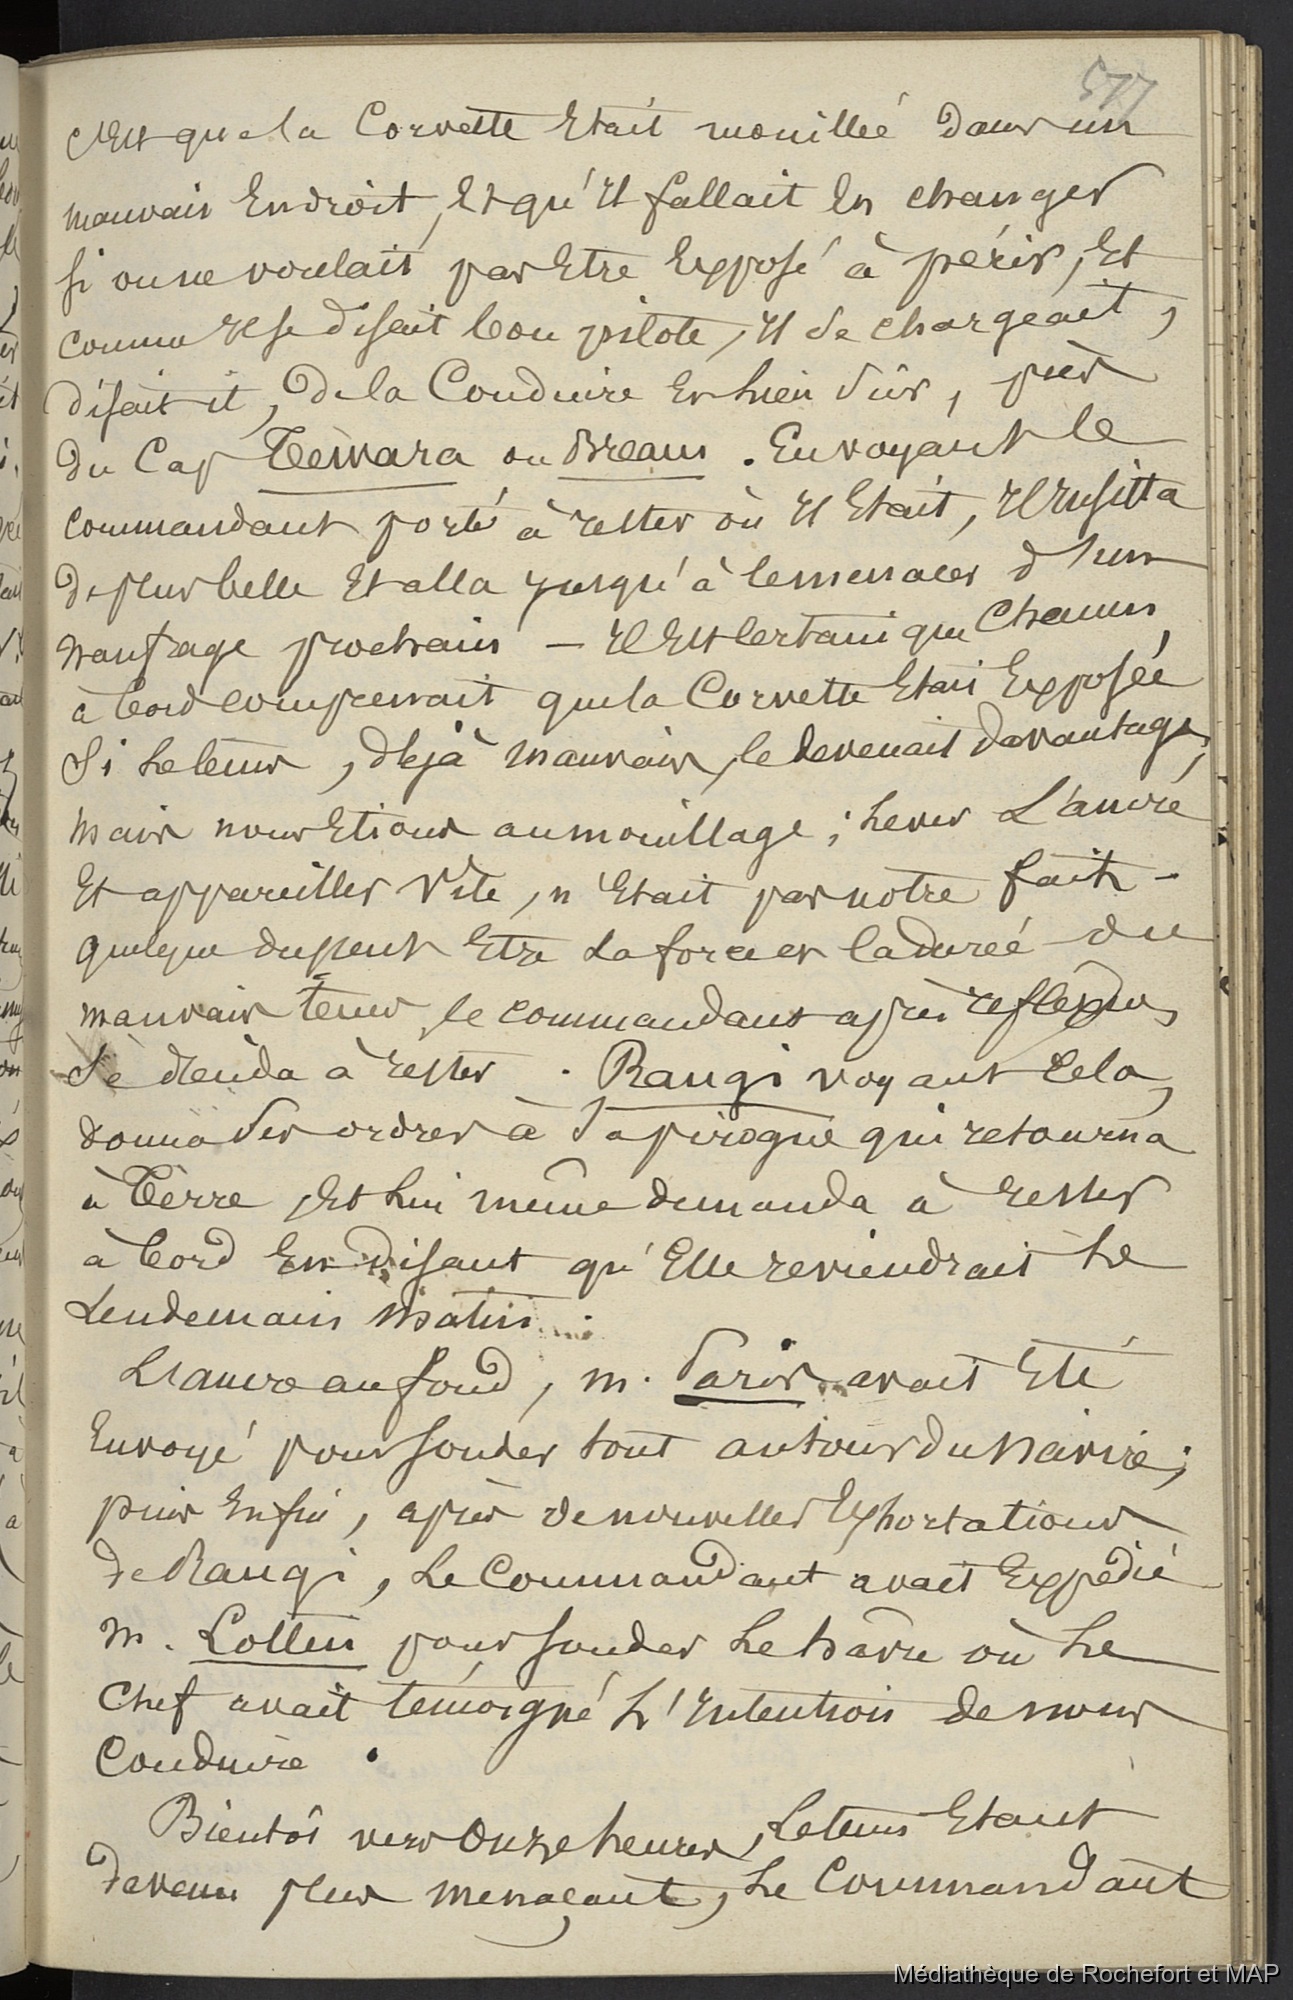 577
C'Est que la Corvette Etait mouillée dans un
mauvais Endroit, Et qu'Il fallait En changer
si on ne voulait pas Etre Exposé à périr, Et
comme Il se disait bon pilote, Il se chargeait,
disait-il, de la Conduire En lieu sûr, près
du Cap Tewara ou Bream. En voyant le
commandant porté à rester où Il Etait, Il Insista
de plus belle Et alla jusqu'à le menacer d'un
naufrage prochain — Il Est certain que Chacun
à bord comprenait que la Corvette Etait Exposée
si le tems, déjà mauvais, le devenait davantage,
mais nous Etions au mouillage ; lever L'ancre
Et appareiller vite, n'Etait pas notre fait -
quelque dussent Etre La force et la durée du
mauvais tems, le commandant après reflexion,
se décida à rester . Rangi voyant Cela,
donna des ordres à sa pirogue qui retourna
à Terre, Et lui même demanda à rester
à bord En disant qu'Elle reviendrait Le
Lendemain matin .
L'ancre au fond, m. Paris avait Eté
Envoyé pour sonder tout autour du Navire ;
puis Enfin, après de nouvelles Exhortations
de Rangi, Le Commandant avait Expédié
m. Lottin pour sonder Le havre où Le
Chef avait témoigné L'Intention de nous
Conduire .
Bientôt vers Onze heures, Le tems Etant
devenu plus menaçant, Le Commandant
Médiathèque de Rochefort et MAP